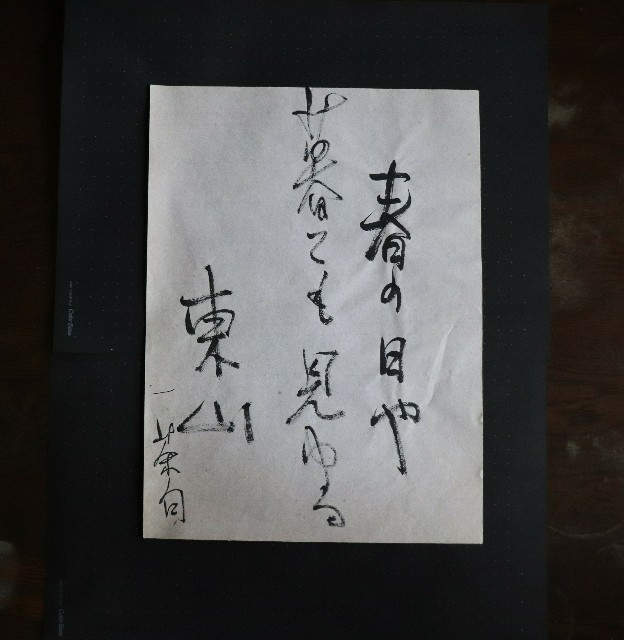 春の日や
暮ても見ゆる
東山
一茶句